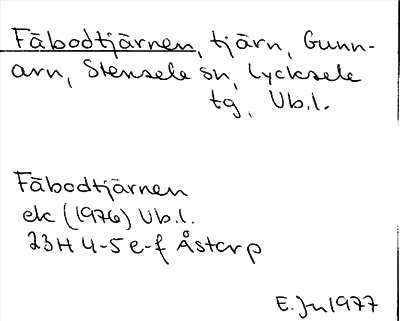 Fäbodtjärnen, tjärn, Gunn-
arn, Stensele sn, Lycksele
tg, Vb.l.
Fäbodtjärnen
ek (1976) Vb.l.
23H 4-5 e-f Åstorp
E. Ju 1977